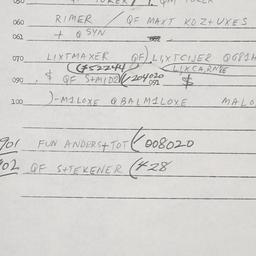 060 RIMER / QF MAXT KOZ+UXES
061 + QSYN
070 LIXTMAXER QF) LIXTCIJER
(+52244) LIXCARNRE
090 . $ QF S+MIDZ (+204020 $
100 )-M1LOXE QBALM1LOXE MALO
901 FUN ANDERS+TOT (+008020
902 QF S+TEKENER (+28